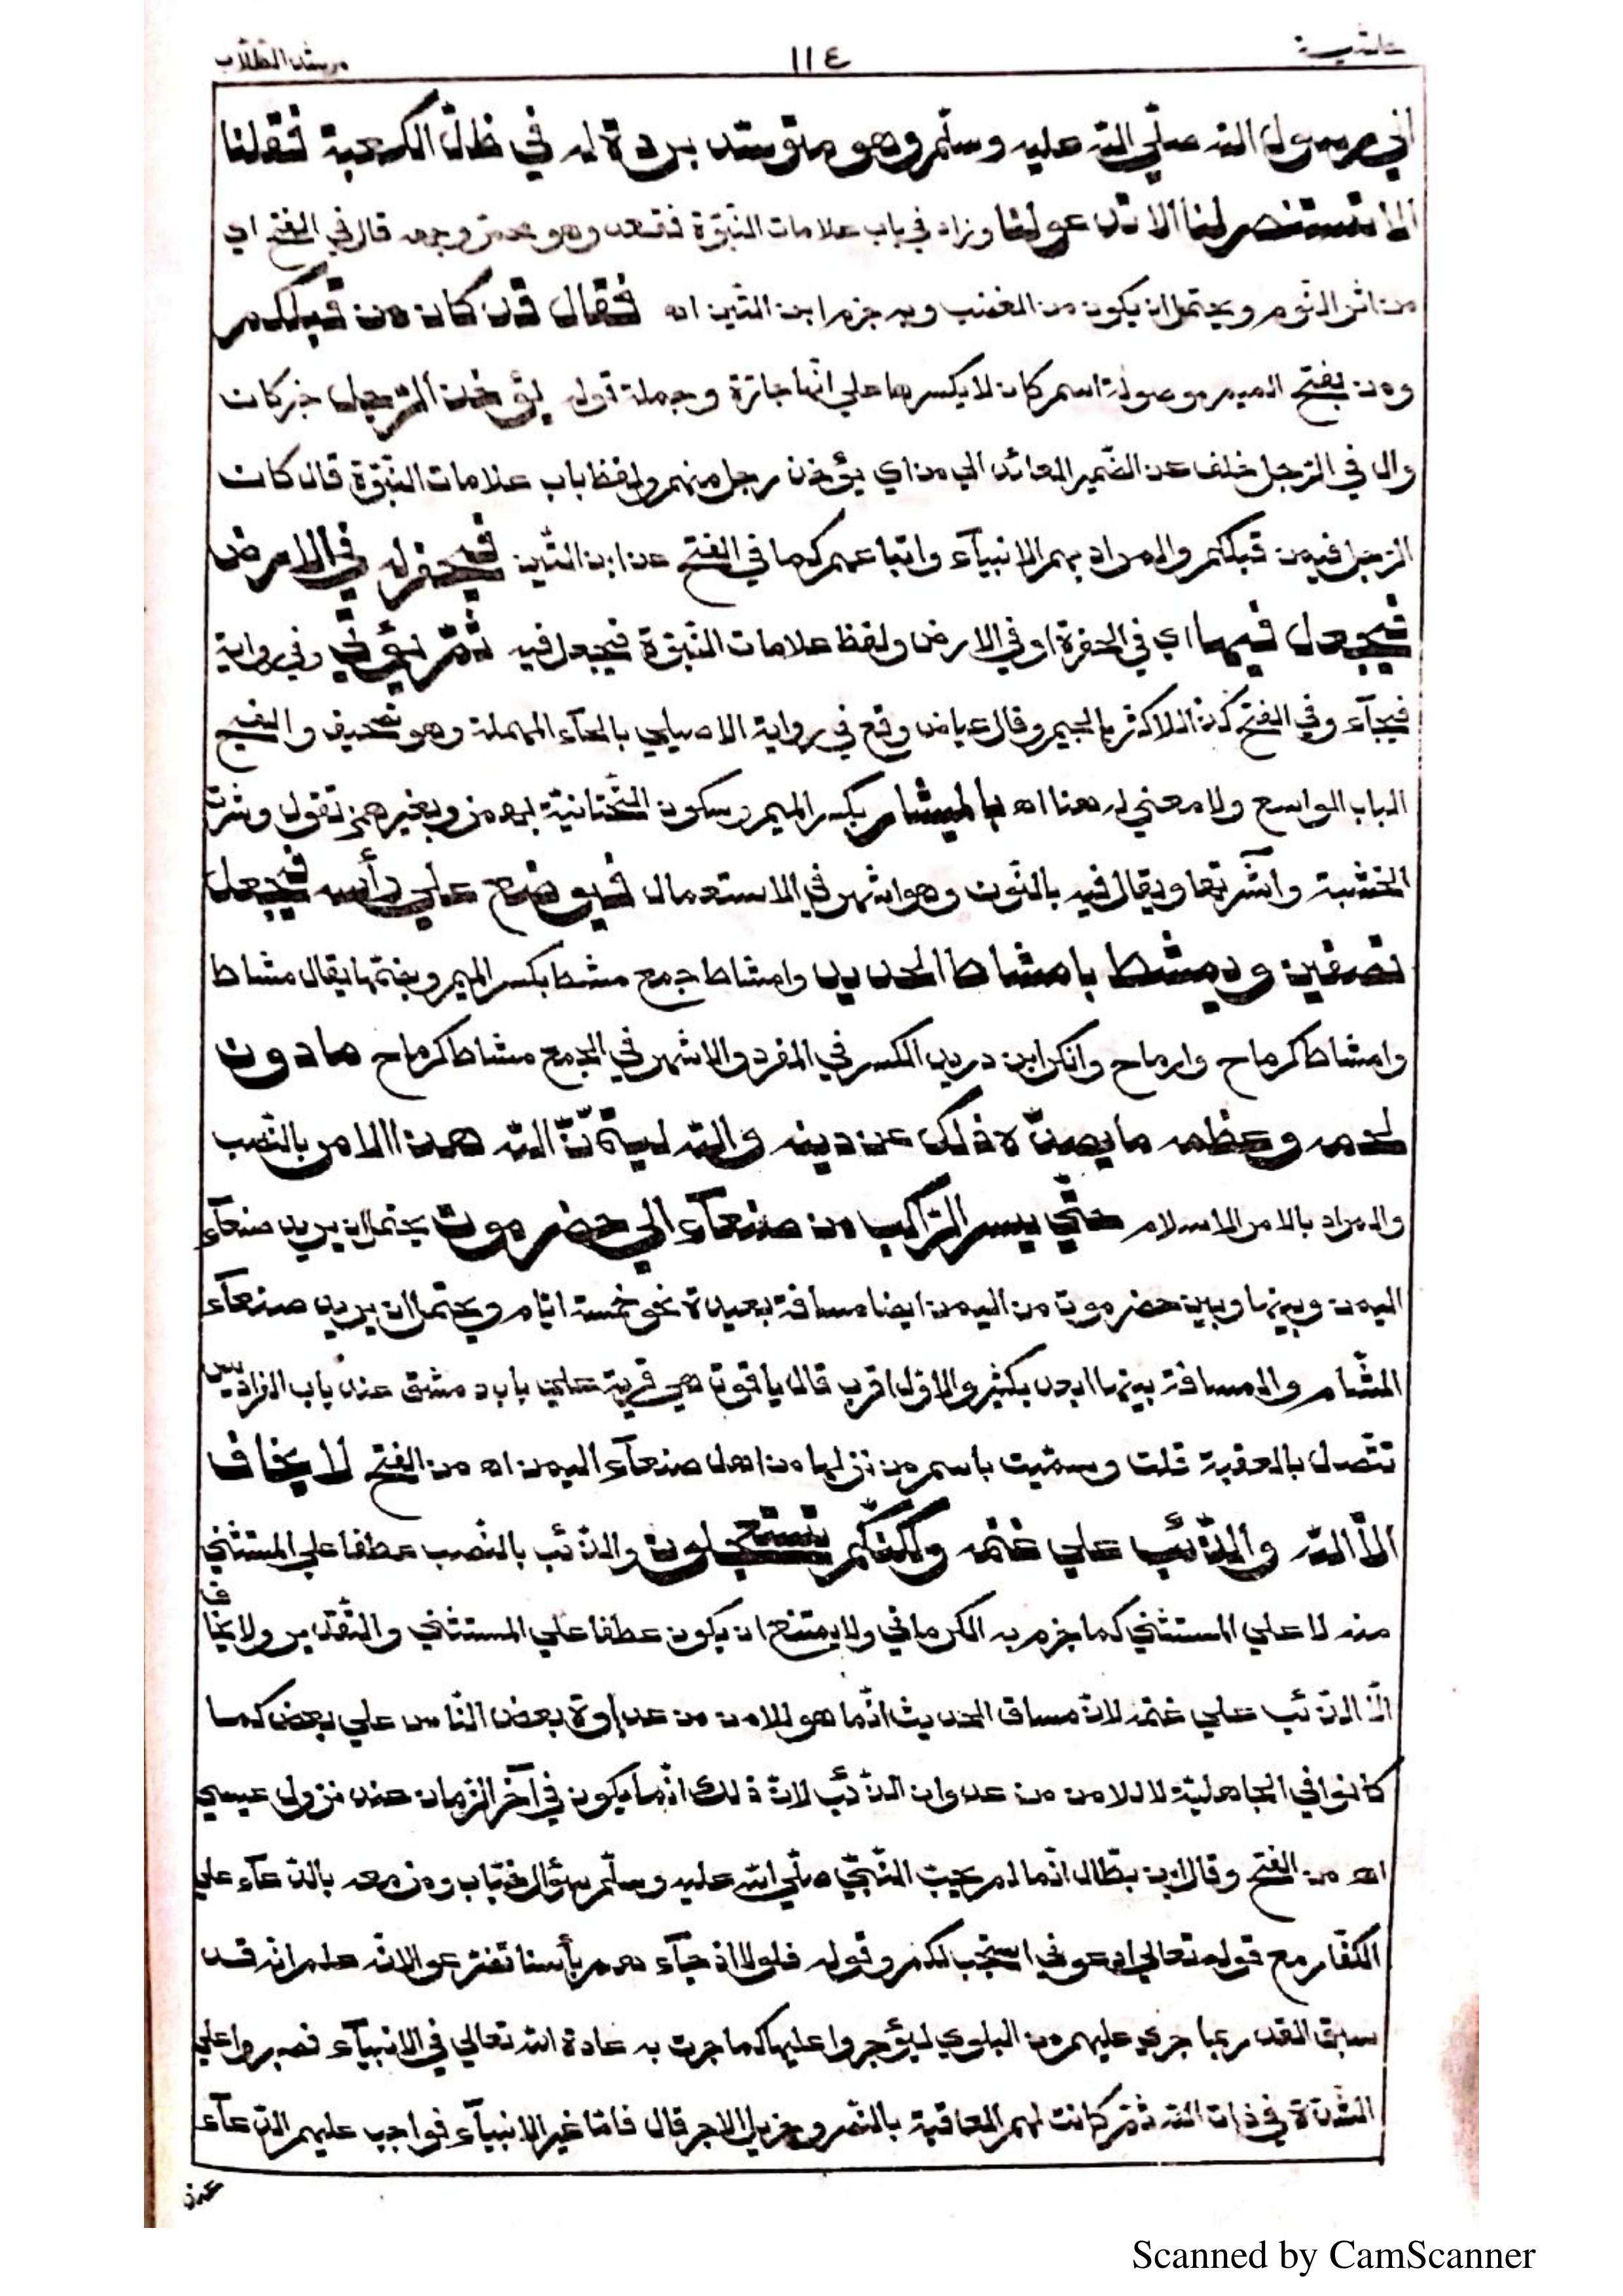 حاشية ١١٤ مرشد الطلّاب
الي رسول الله صلّي الله عليه وسلّم وهو متوسّد بردة له في ظلّ الكعبة فقلنا
الا تستنصر لنا الا تدعو لنا وزاد في باب علامات النّبوّة فقعد وهو محمرّ وجهه قال في الفتح اي
من اثر النّوم ويحتمل ان يكون من الغضب وبه جزم ابن التّين اه فقال قد كان من قبلكم
ومن بفتح الميم موصولة اسم كان لا بكسرها علي انّها جارّة وجملة قوله يؤخذ الرّجل خبر كان
وال في الرّجل خلف عن الضّمير العائد الي من اي يؤخذ رجل منهم ولفظ باب علامات النّبوّة قال كان
الرّجل فيمن قبلكم والمراد بهم الانبيآء واتباعهم كما في الفتح عن ابن التّين فيحفر له في الارض
فيجعل فيها اي في الحفرة او في الارض ولفظ علامات النّبوّة فيجعل فيه ثمّ يؤتي وفي رواية
فيجآء وفي الفتح كذا للاكثر بالجيم وقال عياض وقع في رواية الاصيلي بالحآء المهملة وهو تصحيف والفيح
الباب الواسع ولا معني له هنا اه بالميشار بكسر الميم وسكون التّحتانيّة بهمز وبغير همز تقول وشرت
الخشبة وآشرتها ويقال فيه بالنّون وهو اشهر في الاستعمال فيوضع علي رأسه فيجعل
نصفين ويمشط بامشاط الحديد وامشاط جمع مشط بكسر الميم وبضمّها يقال مشاط
وامشاط كرماح وارماح وانكر ابن دريد الكسر في المفرد والاشهر في الجمع مشاط كرماح ما دون
لحمه وعظمه ما يصدّه ذلك عن دينه والله ليتمّنّ الله هذا الامر بالنّصب
والمراد بالامر الاسلام حتّي يسير الرّاكب من صنعآء الي حضرموت يحتمل ان يريد صنعآء
اليمن وبينها وبين حضرموت من اليمن ايضا مسافة بعيدة نحو خمسة ايّام ويحتمل ان يريد صنعآء
الشّام والمسافة بينهما ابعد بكثير والاوّل اقرب قال ياقوت هي قرية علي باب دمشق عند باب الفراديس
تتّصل بالعقبة قلت وسمّيت باسم من نزلها من اهل صنعآء اليمن اه من الفتح لا يخاف
الّا الله والذّئب علي غنمه ولكنّكم تستعجلون والذّئب بالنّصب عطفا علي المستثني
منه لا علي المستثني كما جزم به الكرماني ولا يمتنع ان يكون عطفا علي المستثني والتّقدير ولا يخاف
الّا الذّئب علي غنمه لانّ مساق الحديث انّما هو للامن من عداوة بعض النّاس علي بعض كما
كانوا في الجاهليّة لا للامن من عدوان الذّئب لانّ ذلك انّما يكون في آخر الزّمان عند نزول عيسي
اه من الفتح وقال ابن بطّال انّما لم يجب النّبيّ صلّي الله عليه وسلّم سؤال خبّاب ومن معه بالدّعآء علي
الكفّار مع قوله تعالي ادعوني استجب لكم وقوله فلولا اذ جآءهم بأسنا تضرّعوا لانّه علم انّه قد
سبق القدر بما جري عليهم من البلوي ليؤجروا عليها كما جرت به عادة الله تعالي في الانبيآء فصبروا علي
الشّدّة في ذات الله ثمّ كانت لهم العاقبة بالنّصر وجزيل الاجر قال فامّا غير الانبيآء فواجب عليهم الدّعآء
عند
Scanned by CamScanner